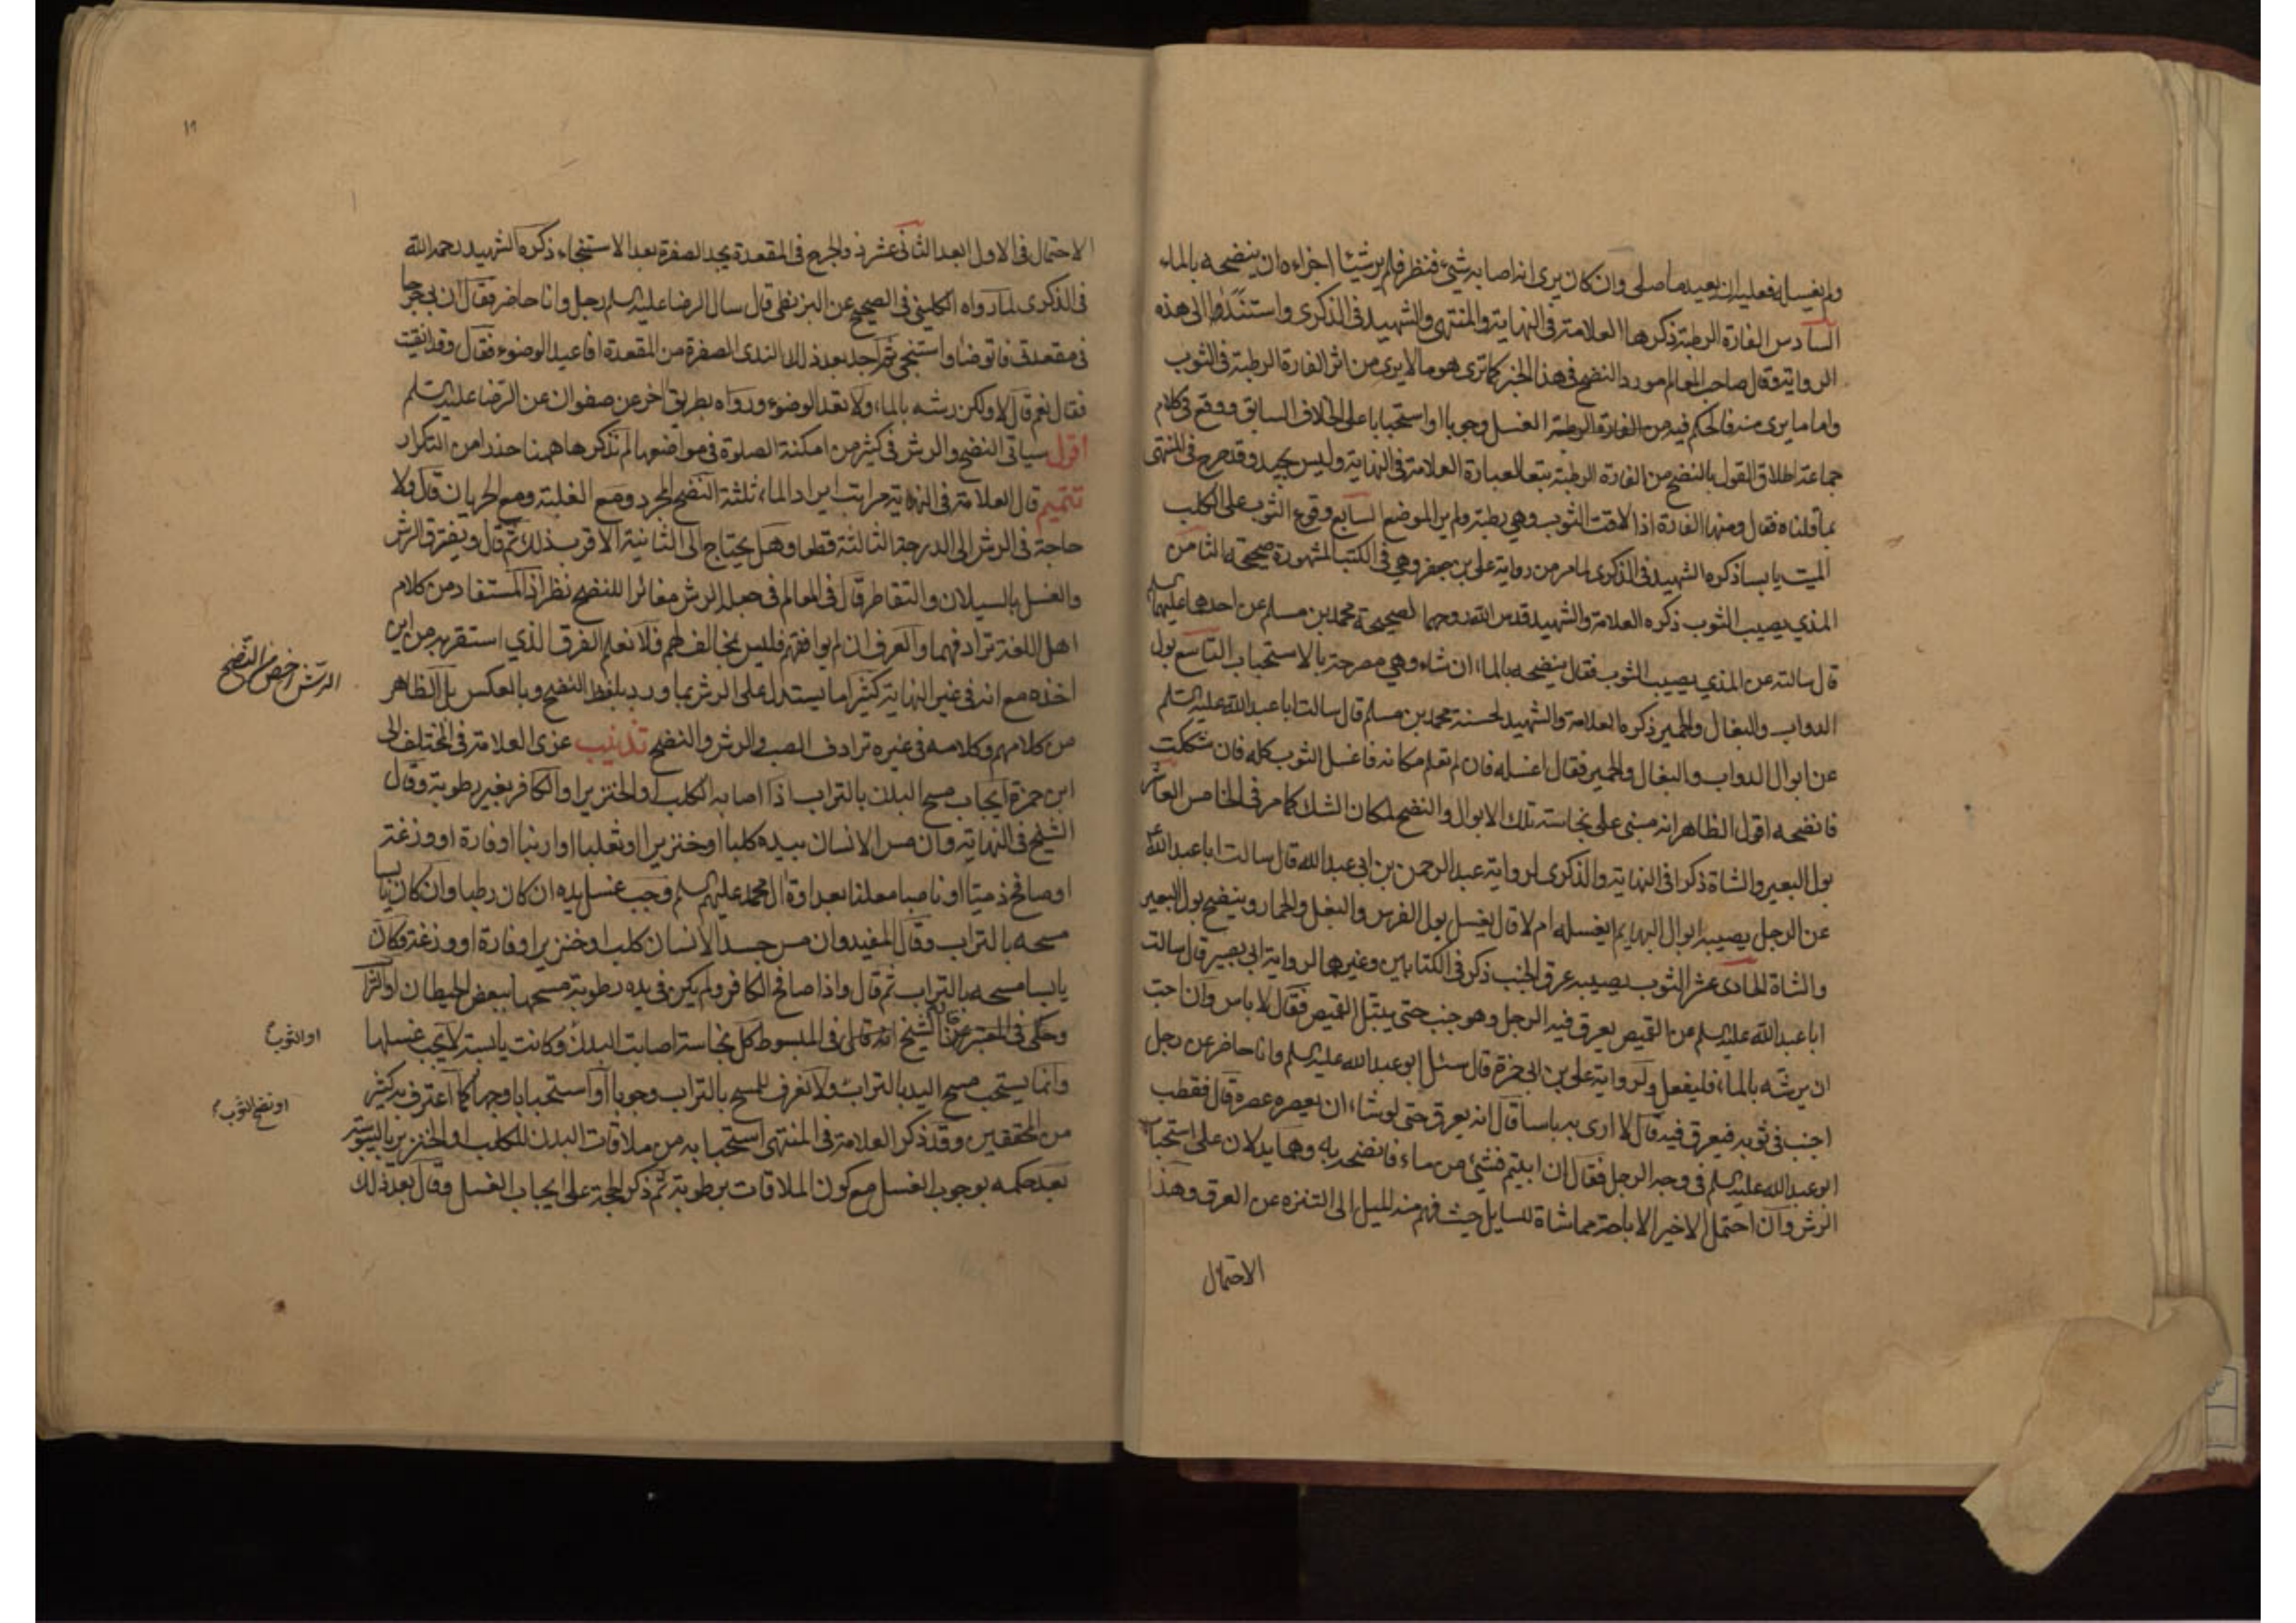 ولم يغسله فعليه ان يعيد ما صلى وان كان يرى انه اصابه شيء فنظر فلم ير شيئا اجزاءه ان ينضحه بالماء
السادس الفارة الرطبة ذكرها العلامة في النهاية والمنتهى والشهيد في الذكرى واستندا الى هذه
الرواية وقال صاحب المعالم مورد النضح في هذا الخبر كما ترى هو ما لا يرى من اثر الفارة الرطبة في الثوب
واما ما يرى منه فالحكم فيه من الفارة الرطبة الغسل وجوبا او استحبابا على الخلاف السابق ووقع في كلام
جماعة اطلاق القول بالنضح من الفارة الرطبة تبعا لعبارة العلامة في النهاية وليس بجيد وقد صرح في المنتهى
بما قلناه فقال ومنها الفارة اذا لاقت الثوب وهي رطبة ولم ير الموضع السابع وقوع الثوب على الكلب
الميت يابسا ذكره الشهيد في الذكرى لما مر من رواية علي بن جعفر وهي في الكتب المشهورة صحيحة الثامن
المذي يصيب الثوب ذكره العلامة والشهيد قدس الله روحهما لصحيحة محمد بن مسلم عن احدهما عليهما السلم
قال سالته عن المذي يصيب الثوب فقال ينضحه بالماء ان شاء وهي مصرحة بالاستحباب التاسع بول
الدواب والبغال والحمير ذكره العلامة والشهيد لحسنة محمد بن مسلم قال سالت ابا عبد الله عليه السلم
عن ابوال الدواب والبغال والحمير فقال اغسله فان لم تعلم مكانه فاغسل الثوب كله فان شككت
فانضحه اقول الظاهر انه مبني على نجاسة تلك الابوال والنضح لمكان الشك كما مر في الخامس العاشر
بول البعير والشاة ذكرا في النهاية والذكرى لرواية عبد الرحمن بن ابي عبد الله قال سالت ابا عبد الله ع
عن الرجل يصيبه ابوال البهايم ايغسله ام لا قال يغسل بول الفرس والبغل والحمار وينضح بول البعير
والشاة الحادى عشر الثوب يصيبه عرق الجنب ذكر في الكتابين وغيرها لرواية ابي بصير قال سالت
ابا عبد الله عليه السلم عن القميص يعرق فيه الرجل وهو جنب حتى يبتل القميص فقال لا باس وان احب
ان يرشه بالماء فليفعل ولرواية علي بن ابي حمزة قال سئل ابو عبد الله عليه السلم وانا حاضر عن رجل
اجنب في ثوبه فيعرق فيه قال لا ارى به باسا قال انه يعرق حتى لو شاء ان يعصره عصره قال فقطب
ابو عبد الله عليه السلم في وجه الرجل فقال ان ابيتم فشئ من ماء فانضحه به وهما يدلان على استحباب
الرش وان احتمل الاخير الاباحة مماشاة للسايل حيث فهم منه الميل الى التنزه عن العرق وهذا
الاحتمال
١٩
الاحتمال في الاول ابعد الثانى عشر ذو الجرح في المقعدة يجد الصفرة بعد الاستنجاء ذكره الشهيد رحمه الله
في الذكرى لما رواه الكليني في الصحيح عن البزنطي قال سال الرضا عليه السلم رجل وانا حاضر فقال ان بي جرحا
في مقعدتي فاتوضا واستنجي ثم اجد بعد ذلك الندى الصفرة من المقعدة افاعيد الوضوء فقال وقد انقيت
فقال نعم قال لا ولكن رشه بالماء ولا تعد الوضوء ورواه بطريق اخر عن صفوان عن الرضا عليه السلم
اقول سياتي النضح والرش في كثير من امكنة الصلوة في مواضعها لم نذكرها ههنا حذرا من التكرار
تتميم قال العلامة في النهاية مراتب ايراد الماء ثلثة النضح المجرد ومع الغلبة ومع الجريان قال ولا
حاجة في الرش الى الدرجة الثالثة قطعا وهل يحتاج الى الثانية الاقرب ذلك ثم قال ويفترق الرش
والغسل بالسيلان والتقاطر قال في المعالم في جعله الرش مغائرا للنضح نظر اذ المستفاد من كلام
اهل اللغة ترادفهما والعرف ان لم يوافقهم فليس بمخالف لهم فلا نعلم الفرق الذي استقربه من اين
الرش اخص من النضح
اخذه مع انه في غير النهاية كثيرا ما يستدل على الرش بما ورد بلفظ النضح وبالعكس بل الظاهر
من كلامهم وكلامه في غيره ترادف الصب والرش والنضح تذنيب عزى العلامة في المختلف الى
ابن حمزة ايجاب مسح البدن بالتراب اذا اصابه الكلب او الخنزير او الكافر بغير رطوبة وقال
الشيخ في النهاية وان مس الانسان بيده كلبا او خنزيرا او ثعلبا او ارنبا او فارة او وزغة
او صافح ذميا او ناصبا معلنا بعداوة ال محمد عليهم السلم وجب غسل يده ان كان رطبا وان كان يابسا
مسحه بالتراب وقال المفيد وان مس جسد الانسان كلب او خنزير او فارة او وزغة وكان
يابسا مسحه بالتراب ثم قال واذا صافح الكافر ولم يكن في يده رطوبة مسحها ببعض الحيطان او التراب
وحكى في المعتبر عن الشيخ انه قال في المبسوط كل نجاسة اصابت البدن وكانت يابسة لا يجب غسلها
او الثوب
وانما يستحب مسح اليد بالتراب ولا نعرف للمسح بالتراب وجوبا او استحبابا وجها كما اعترف به كثير
او نضح الثوب
من المحققين وقد ذكر العلامة في المنتهى استحبابه من ملاقات البدن للكلب او الخنزير باليبوسة
بعد حكمه بوجوب الغسل مع كون الملاقات برطوبة ثم ذكر الحجة على ايجاب الغسل وقال بعد ذلك